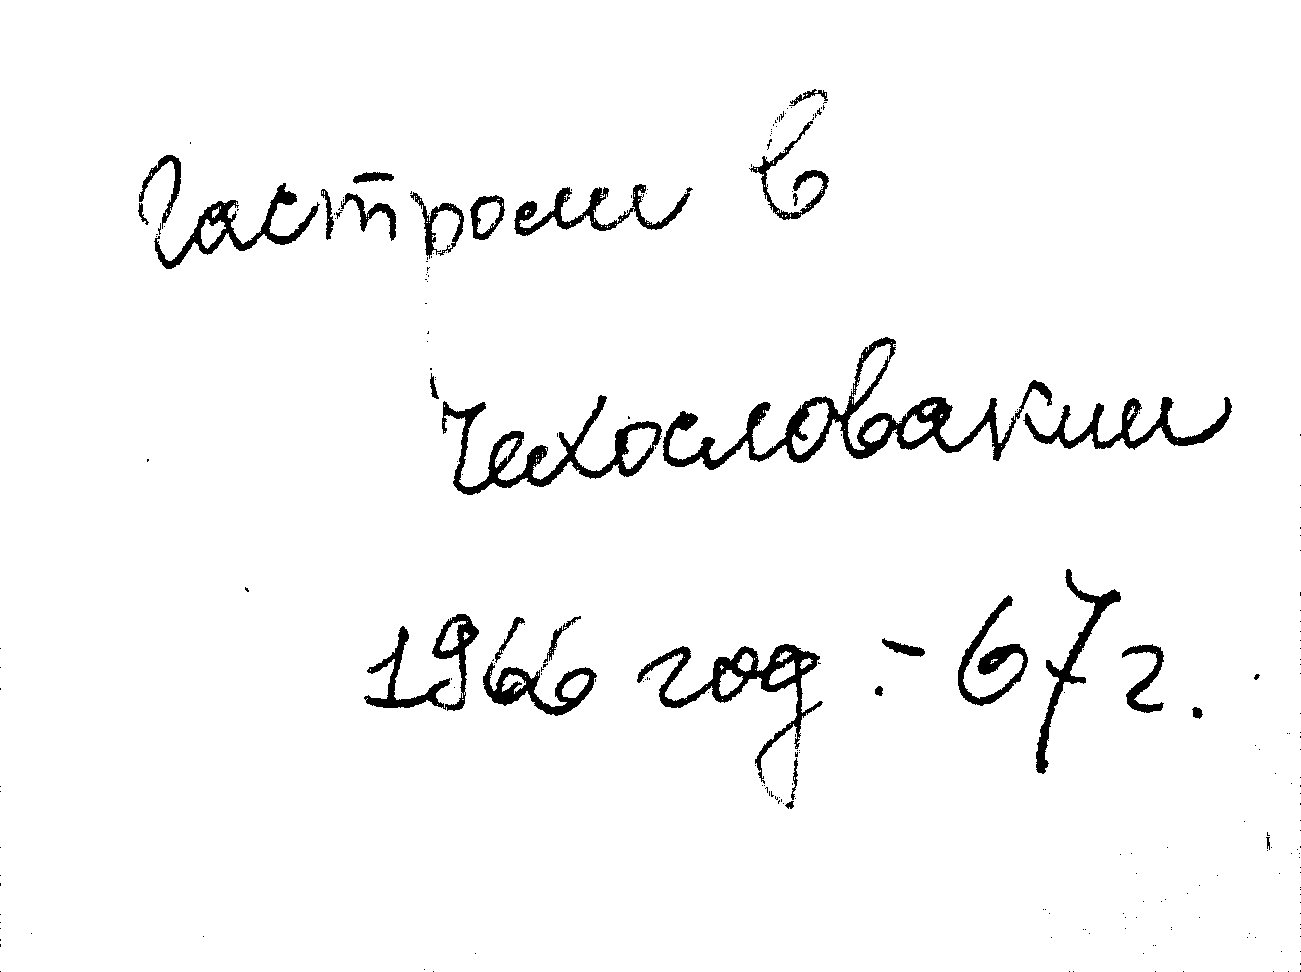 Гастроли в
Чехословакии
1966 год. - 67 г.